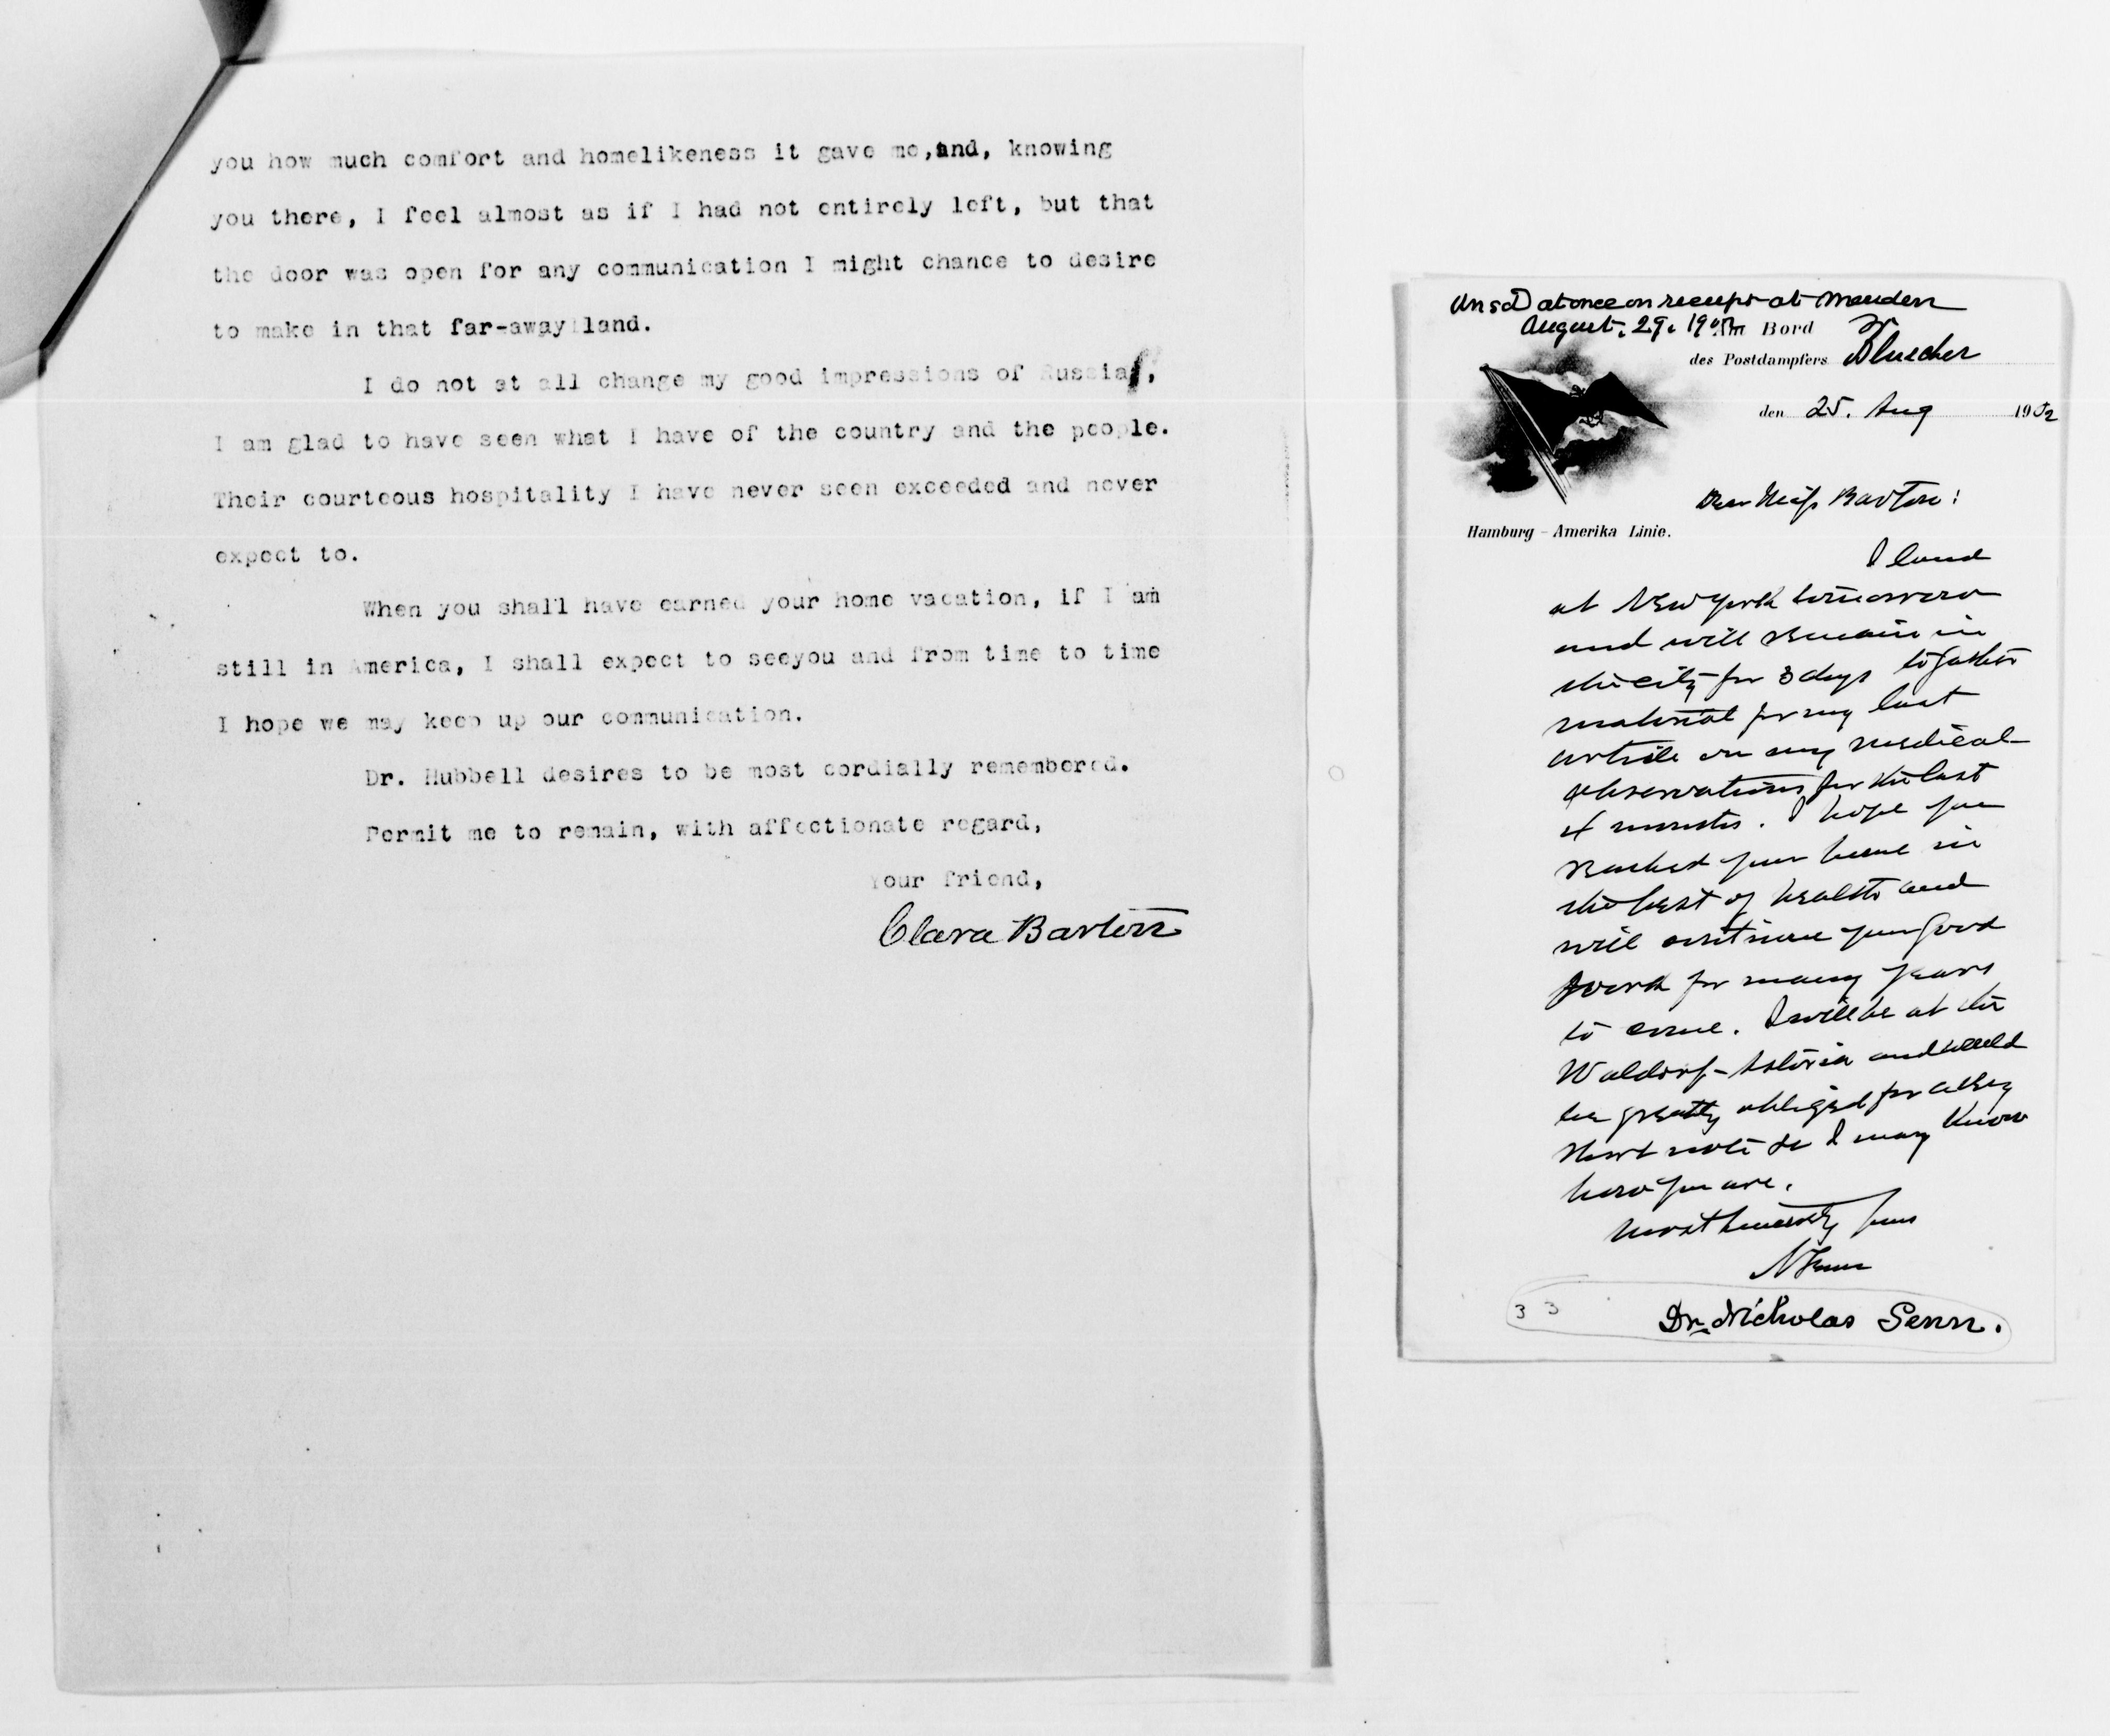 you how much comfort and homelikeness it gave me,and, knowing
you there, I feel almost as if I had not entirely left, but that
the door was open for any communication I might chance to desire
to make in that far-away land.
I do not at all change my good impressions of Russia,
I am glad to have seen what I have of the country and the people.
Their courteous hospitality I have never seen exceeded and never
expect to.
When you shall have earned your home vacation, if I am
still in America, I shall expect to seeyou and from time to time
I hope we may keep up our communication.
Dr. Hubbell desires to be most cordially remembered.
Permit me to remain, with affectionate regard,
Your friend,
Clara Barton
Ansd at once on receipt at Meriden
August. 29. 1902
An Bord
des Postdampfers Bluecher
den 25. Aug 1902
Hamburg - Amerika Linie.
Dear Miss Barton:
I land
at New York tomorrow
and will remain in
the city for 3 days to gather
material for my last
article on my medical
observations for the last
4 months. I hope you
reached your home in
the best of health and
will continue your good
work for many years
to come. I will be at the
Waldorf-Astoria and would
be greatly obliged for a very
short note so I may know
how you are.
Most sincerely yours
N Senn
3 3
Dr. Nicholas Senn.